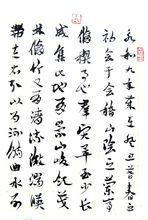 永和九年歲在癸丑暮春之
初會于會稽山陰之蘭亭
脩稧事也羣賢畢至少長
咸集此地有崇山峻領茂
林脩竹又有清流激湍暎
帶左右引以為流觴曲水